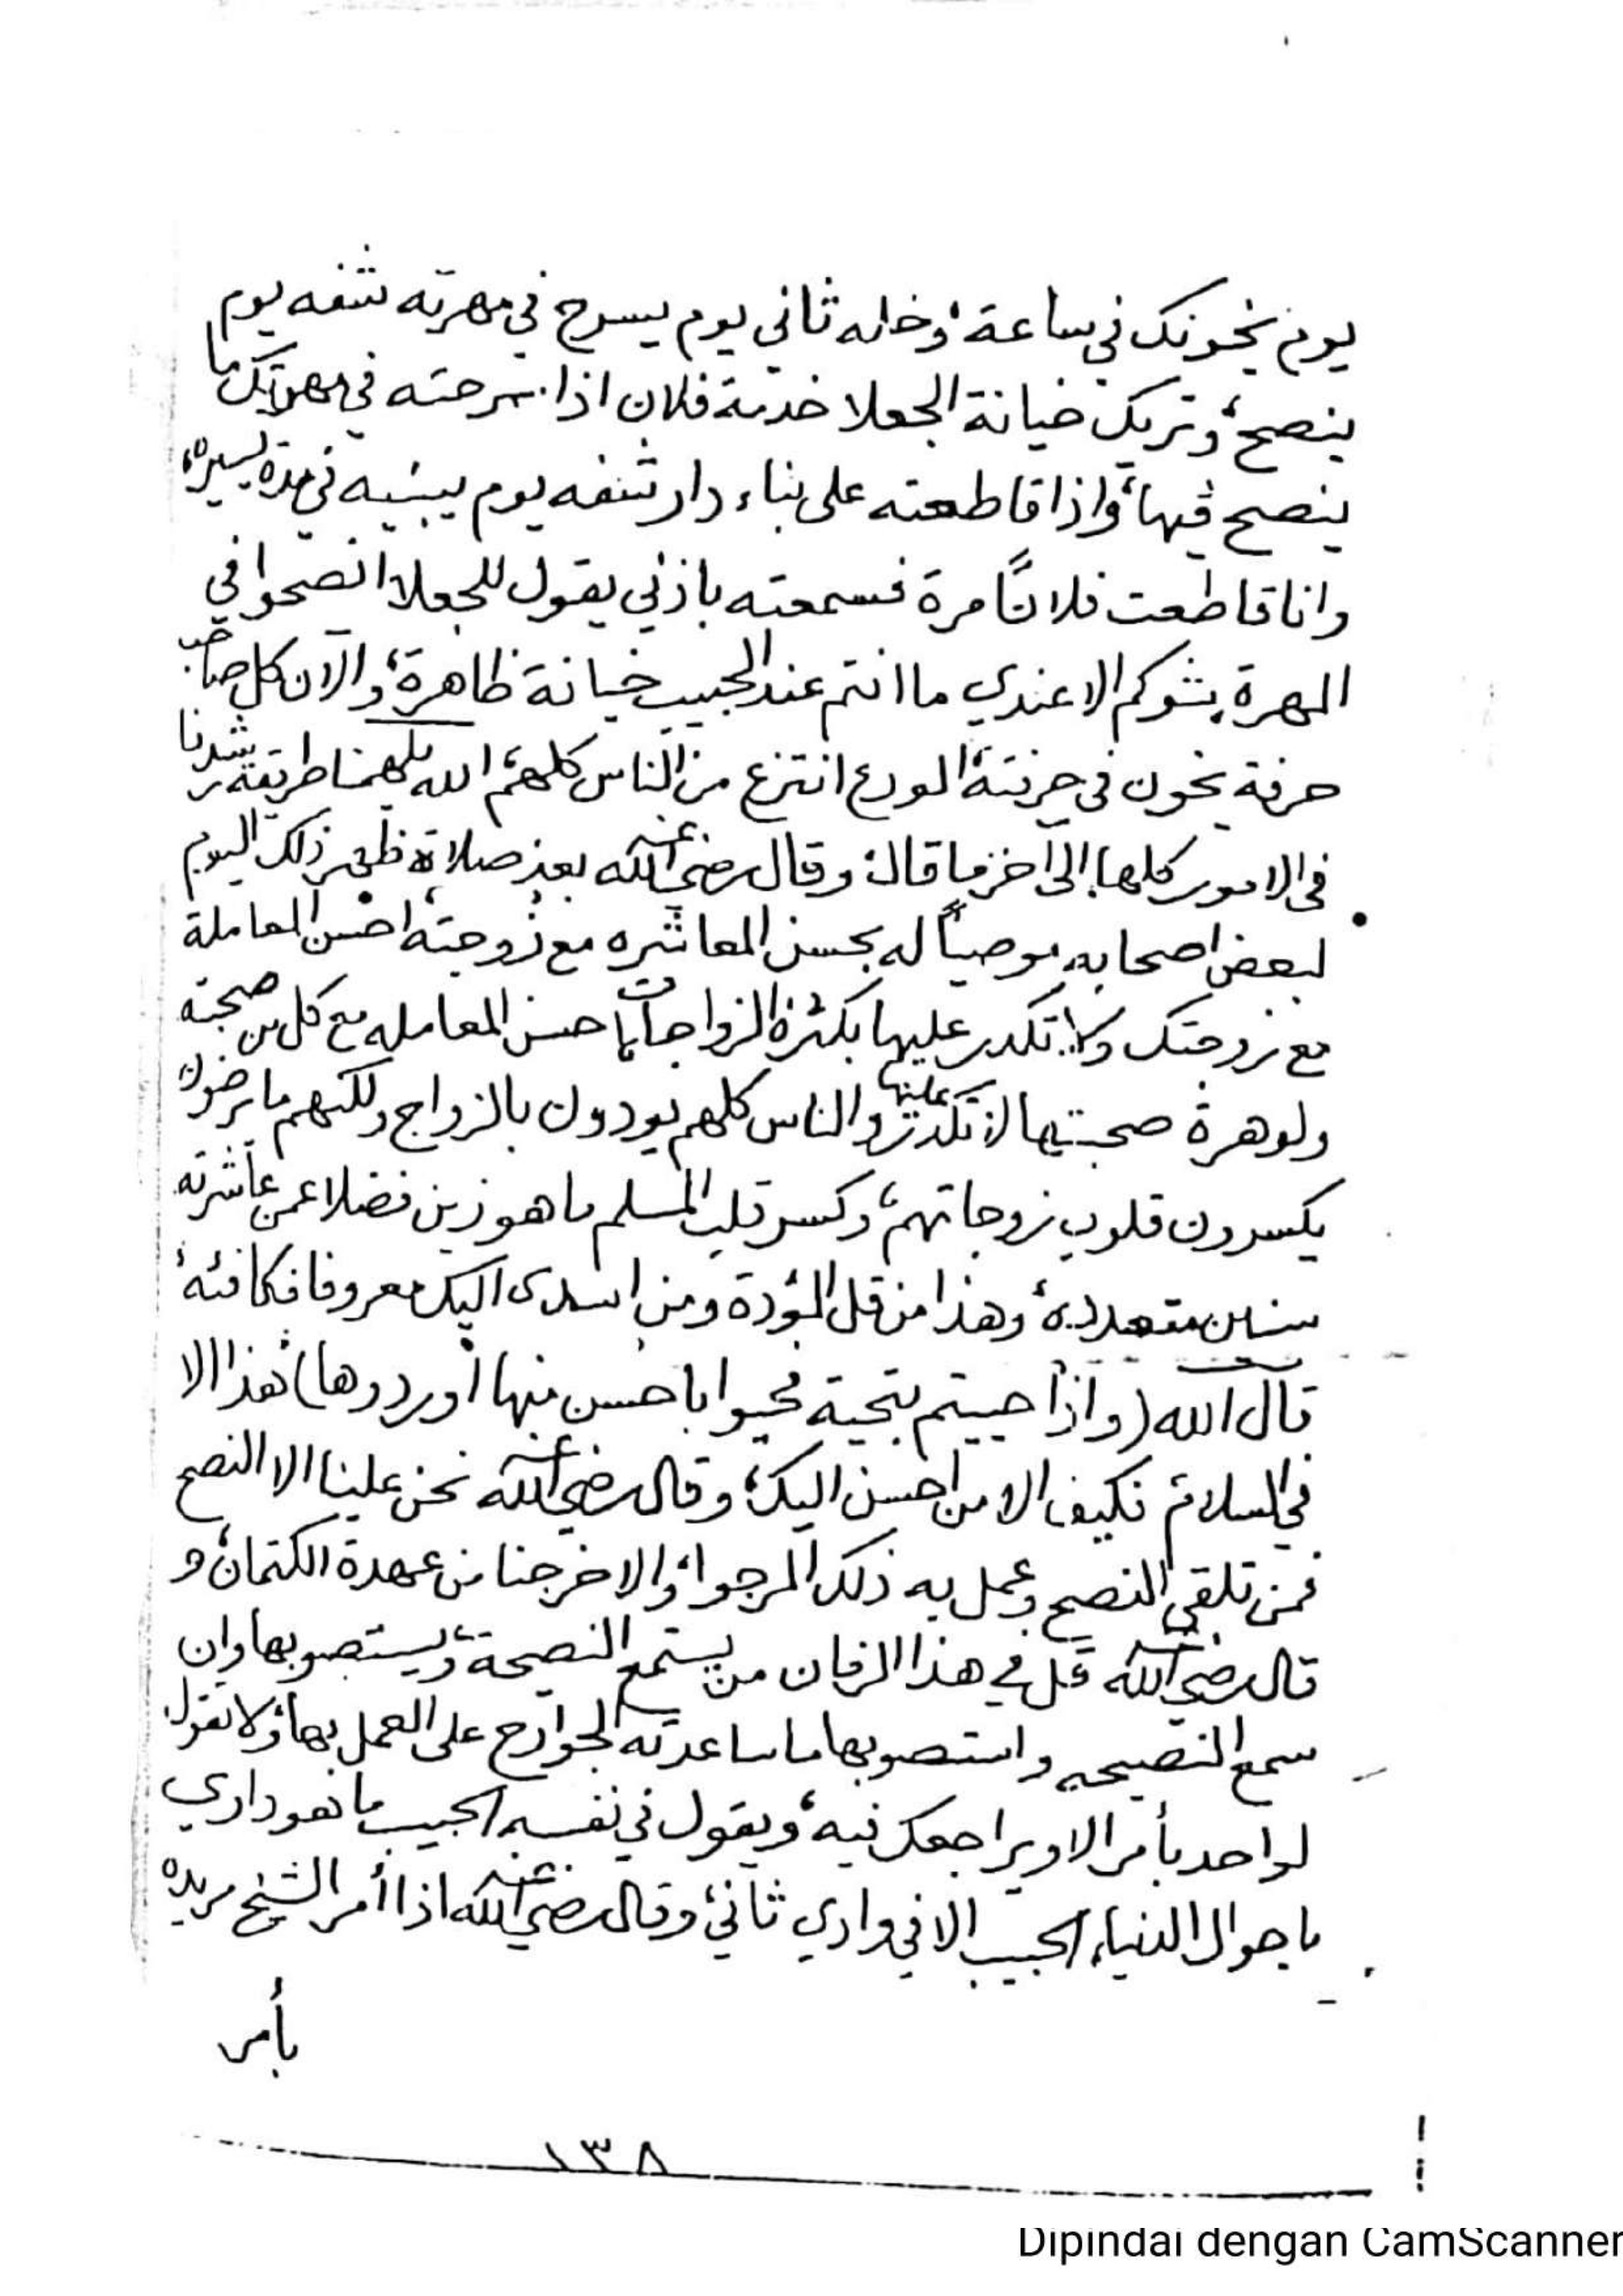 يوم يخونك في ساعة، وخله ثاني يوم يسرح في مهرته شفه يوم
ينصح، وتريك خيانة الجعلا خدمة فلان اذا سرحته في مهرتك ما
ينصح فيها، واذا قاطعته على بناء دار شفه يوم يبنيه في مدة يسيره،
وانا قاطعت فلانًا مرة فسمعته باذني يقول للجعلا انصحوا في
المهرة بشوكم الا عندي ما انتم عند الحبيب خيانة ظاهرة، والآن كل صاحب
حرفة يخون في حرفته، الورع انتزع من الناس كلهم، الله يلهمنا طريقة رشدنا
في الامور كلها، إلى آخر ما قال، وقال رضي الله عنه بعد صلاة ظهر ذلك اليوم
لبعض اصحابه موصيًا له بحسن المعاشره مع زوجته، احسن المعاملة
مع زوجتك ولا تكدر عليها بكثرة الزواجات، احسن المعامله مع كل من صحبته
ولو هرة صحبتها لا تكدر عليها، والناس كلهم يودون بالزواج ولكنهم ما يرضون
يكسرون قلوب زوجاتهم، وكسر قلب المسلم ما هو زين فضلا عمن عاشرته
سنين متعدده، وهذا من قل المودة ومن اسدى اليك معروفا فكافئه،
قال الله (واذا حييتم بتحية فحيوا باحسن منها أو ردوها) هذا الا
في السلام فكيف الا من احسن اليك، وقال رضي الله عنه نحن علينا الا النصح
فمن تلقى النصح وعمل به ذلك المرجوا، والا خرجنا من عهدة الكتمان، و
قال رضي الله عنه قل في هذا الزمان من يستمع النصيحة، ويستصوبها وان
سمع النصيحه واستصوبها ما ساعدته الجوارح على العمل بها، ولا تقول
لواحد بأمر الا ويراجعك فيه، ويقول في نفسه الحبيب ما هو داري
باحوال الدنيا، الحبيب الا في وادي ثاني، وقال رضي الله عنه اذا أمر الشيخ مريده
بأمر
١٣٨
Dipindai dengan CamScanner